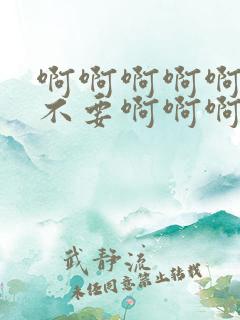 啊啊啊啊啊
不要啊啊啊
武静流
未经同意禁止转载